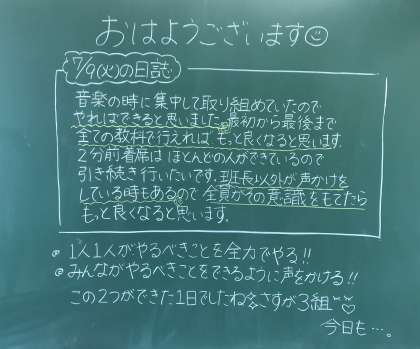 おはようございます☺
7/9(火)の日誌
音楽の時に集中して取り組めていたので
やればできると思いました。最初から最後まで
全ての教科で行えれば もっと良くなると思います。
2分前着席は ほとんどの人ができているので
引き続き行いたいです。班長以外が声かけを
している時もあるので 全員がその意識をもてたら
もっと良くなると思います。
1人1人がやるべきことを全力でやる!!
みんながやるべきことをできるように声をかける!!
この2つができた1日でしたね さすが3組
今日も…。